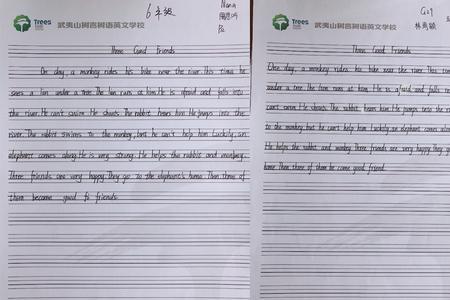 Trees
武夷山树言树语英文学校
6年级
Nana
Three Good Friends
On day, a monkey rides his bike near the river. This time he
sees a lion under a tree. The lion runs at him. He is afraid and falls into
the river. He can't swim. He shouts. The rabbit hears him. He jumps into the
river. The rabbit swims to the monkey, but he can't help him. Luckily an
elephant comes along. He is very strong. He helps the rabbit and monkey.
Three friends are very happy. They go to the elephant's home. Then three of
them become good friends.
Trees
武夷山树言树语英文学校
Three Good Friends
One day, a monkey rides his bike near the river. This time
under a tree. The lion runs at him. He is afraid and falls
can't swim. He shouts. The rabbit hears him. He jumps into the
to the monkey, but he can't help him. Luckily an elephant comes along
He helps the rabbit and monkey. Three friends are very happy. They go
home. Then three of them become good friend.